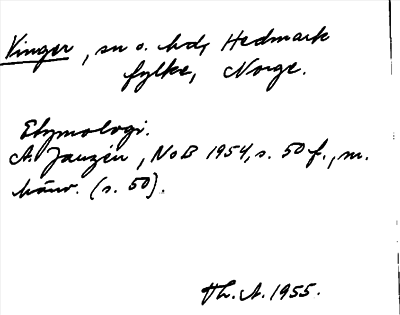 Vinger, sn o. hd, Hedmark
fylke, Norge.
Etymologi.
A. Janzén, NoB 1954, s. 50 f., m.
hänv. (s. 50).
Th. A. 1955.